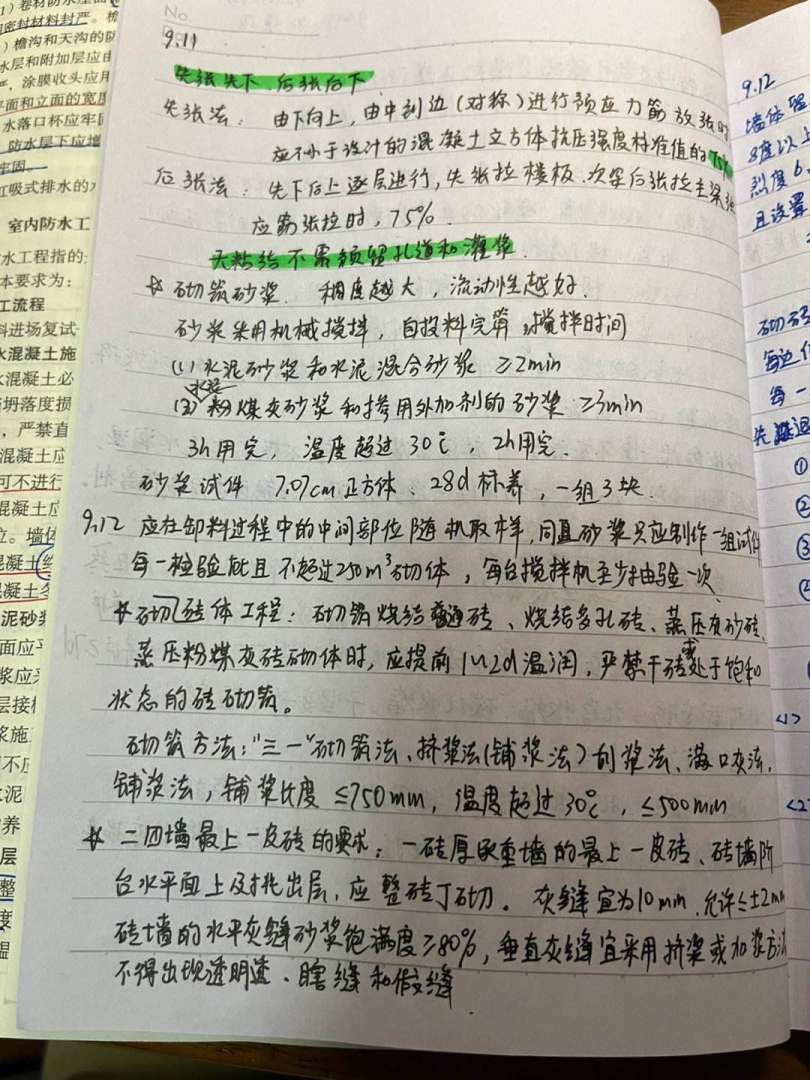 No.
9.11
先张先下 后张后下
先张法： 由下向上，由中到边（对称）进行预应力筋放张时
应不小于设计的混凝土立方体抗压强度标准值的75%
后张法： 先下后上逐层进行，先张拉楼板、次梁后张拉主梁
应筋张拉时，75%
无粘结不需预留孔道和灌浆
☆ 砌筑砂浆 稠度越大，流动性越好．
砂浆采用机械搅拌，自投料完算 搅拌时间
(1) 水泥砂浆和水泥混合砂浆 ≥2min
水泥
(2) 粉煤灰砂浆和掺用外加剂的砂浆 ≥3min
3h用完， 温度超过30℃，2h用完．
砂浆试件 7.07cm正方体、28d标养，一组3块．
9.12 应在卸料过程中的中间部位随机取样，同盘砂浆只应制作一组试件
每一检验批且不超过250m³砌体，每台搅拌机至少抽验一次．
☆ 砌砖体工程：砌筑烧结普通砖、烧结多孔砖、蒸压灰砂砖、
蒸压粉煤灰砖砌体时，应提前1~2d湿润，严禁干砖或处于饱和
状态的砖砌筑。
砌筑方法："三一"砌筑法、挤浆法(铺浆法)刮浆法、满口灰法，
铺浆法，铺浆长度 ≤750mm，温度超过30℃，≤500mm
☆ 二四墙最上一皮砖的要求：一砖厚承重墙的最上一皮砖、砖墙阶
台水平面上及挑出层，应整砖丁砌。灰缝宜为10mm，允许≤±2mm
砖墙的水平灰缝砂浆饱满度≥80%，垂直灰缝宜采用挤浆或加浆方法
不得出现透明缝、瞎缝和假缝
1）卷材防水屋面
密封材料封严。檐
）檐沟和天沟的防
水层和附加层应由
，涂膜收头应用
平面和立面的宽度
水落口杯应牢固
防水层下应增
牢固。
虹吸式排水的
室内防水工
水工程指的
本要求为：
工流程
料进场复试
水混凝土施
混凝土必
坍落度损
，严禁直
混凝土应
可不进行
混凝土应
位。墙体
混凝土终
混凝土冬
泥砂浆
面应平
浆应采
层接
浆施
不应
水泥
养
层
整
度
温
9.12
墙体留
8度以上
烈度6、
且设置
砌砖
每边
每一
先退
①
②
③
④
<1>
<2